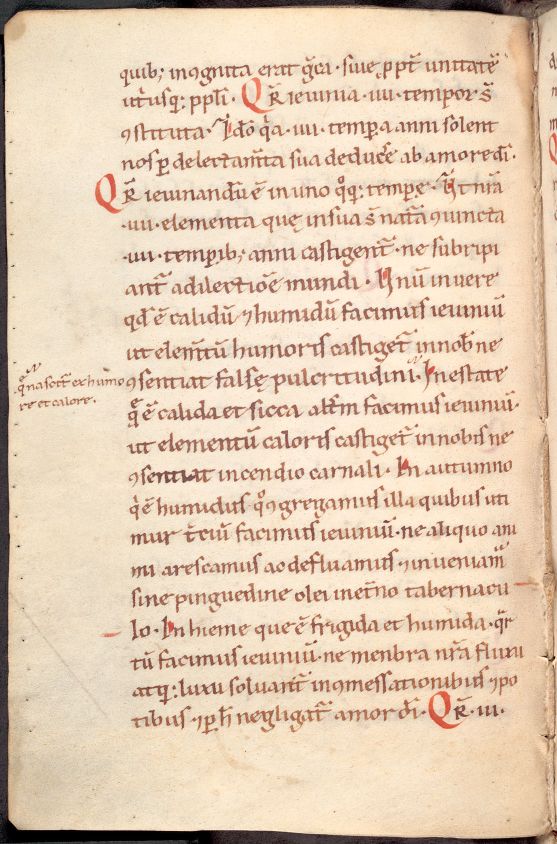 quib; incognita erat gr̄ca · siue ꝓpt̄ unitatē
utriusq; ppl̄i · Qr̄ ieiunia · iiii · tempor̄ s̄
ꝯstituta · Ideo q̄a · iiii · tempora anni solent
nos ꝑ delectam̄ta sua deducēre ab amore dī ·
Qr̄ ieiunandū ē in uno q°q; tempore · Ut nr̄a
· iiii · elementa quę in sua s̄ natā ꝯiuncta
· iiii · temporib; anni castigent̄ · ne subripi
ant̄ a dilectiōe mundi · Nnū in uere
qd̄ ē calidū ⁊ humidū facimus ieiuniū
ut elem̄tū humoris castiget̄ in nob̄ ne
ꝯsentiat falsę pulcritudini · In estate
q̄ ē calida et sicca alt̄m facimus ieiuniū ·
ut elementū caloris castiget̄ in nobis ne
ꝯsentiat incendio carnali · In autumno
q̄ ē humidus q° ꝯgregamus illa quibus uti
mur t̄ciū facimus ieiuniū · ne aliquo ani
mi arescamus ac defluamus · ⁊ inueniam̄
sine pinguedine olei in et̄no tabernacu
lo · In hieme que ē frigida et humida · qr̄
tū facimus ieiuniū · ne menbra nr̄a fluxu
atq; luxu soluant̄ in ꝯmessationibus ⁊ po
tibus · ⁊ ꝑ h̄ negligat̄ amor dī · Qr̄ · iii ·
q̄ nascit̄ ex humo
re et calore ·